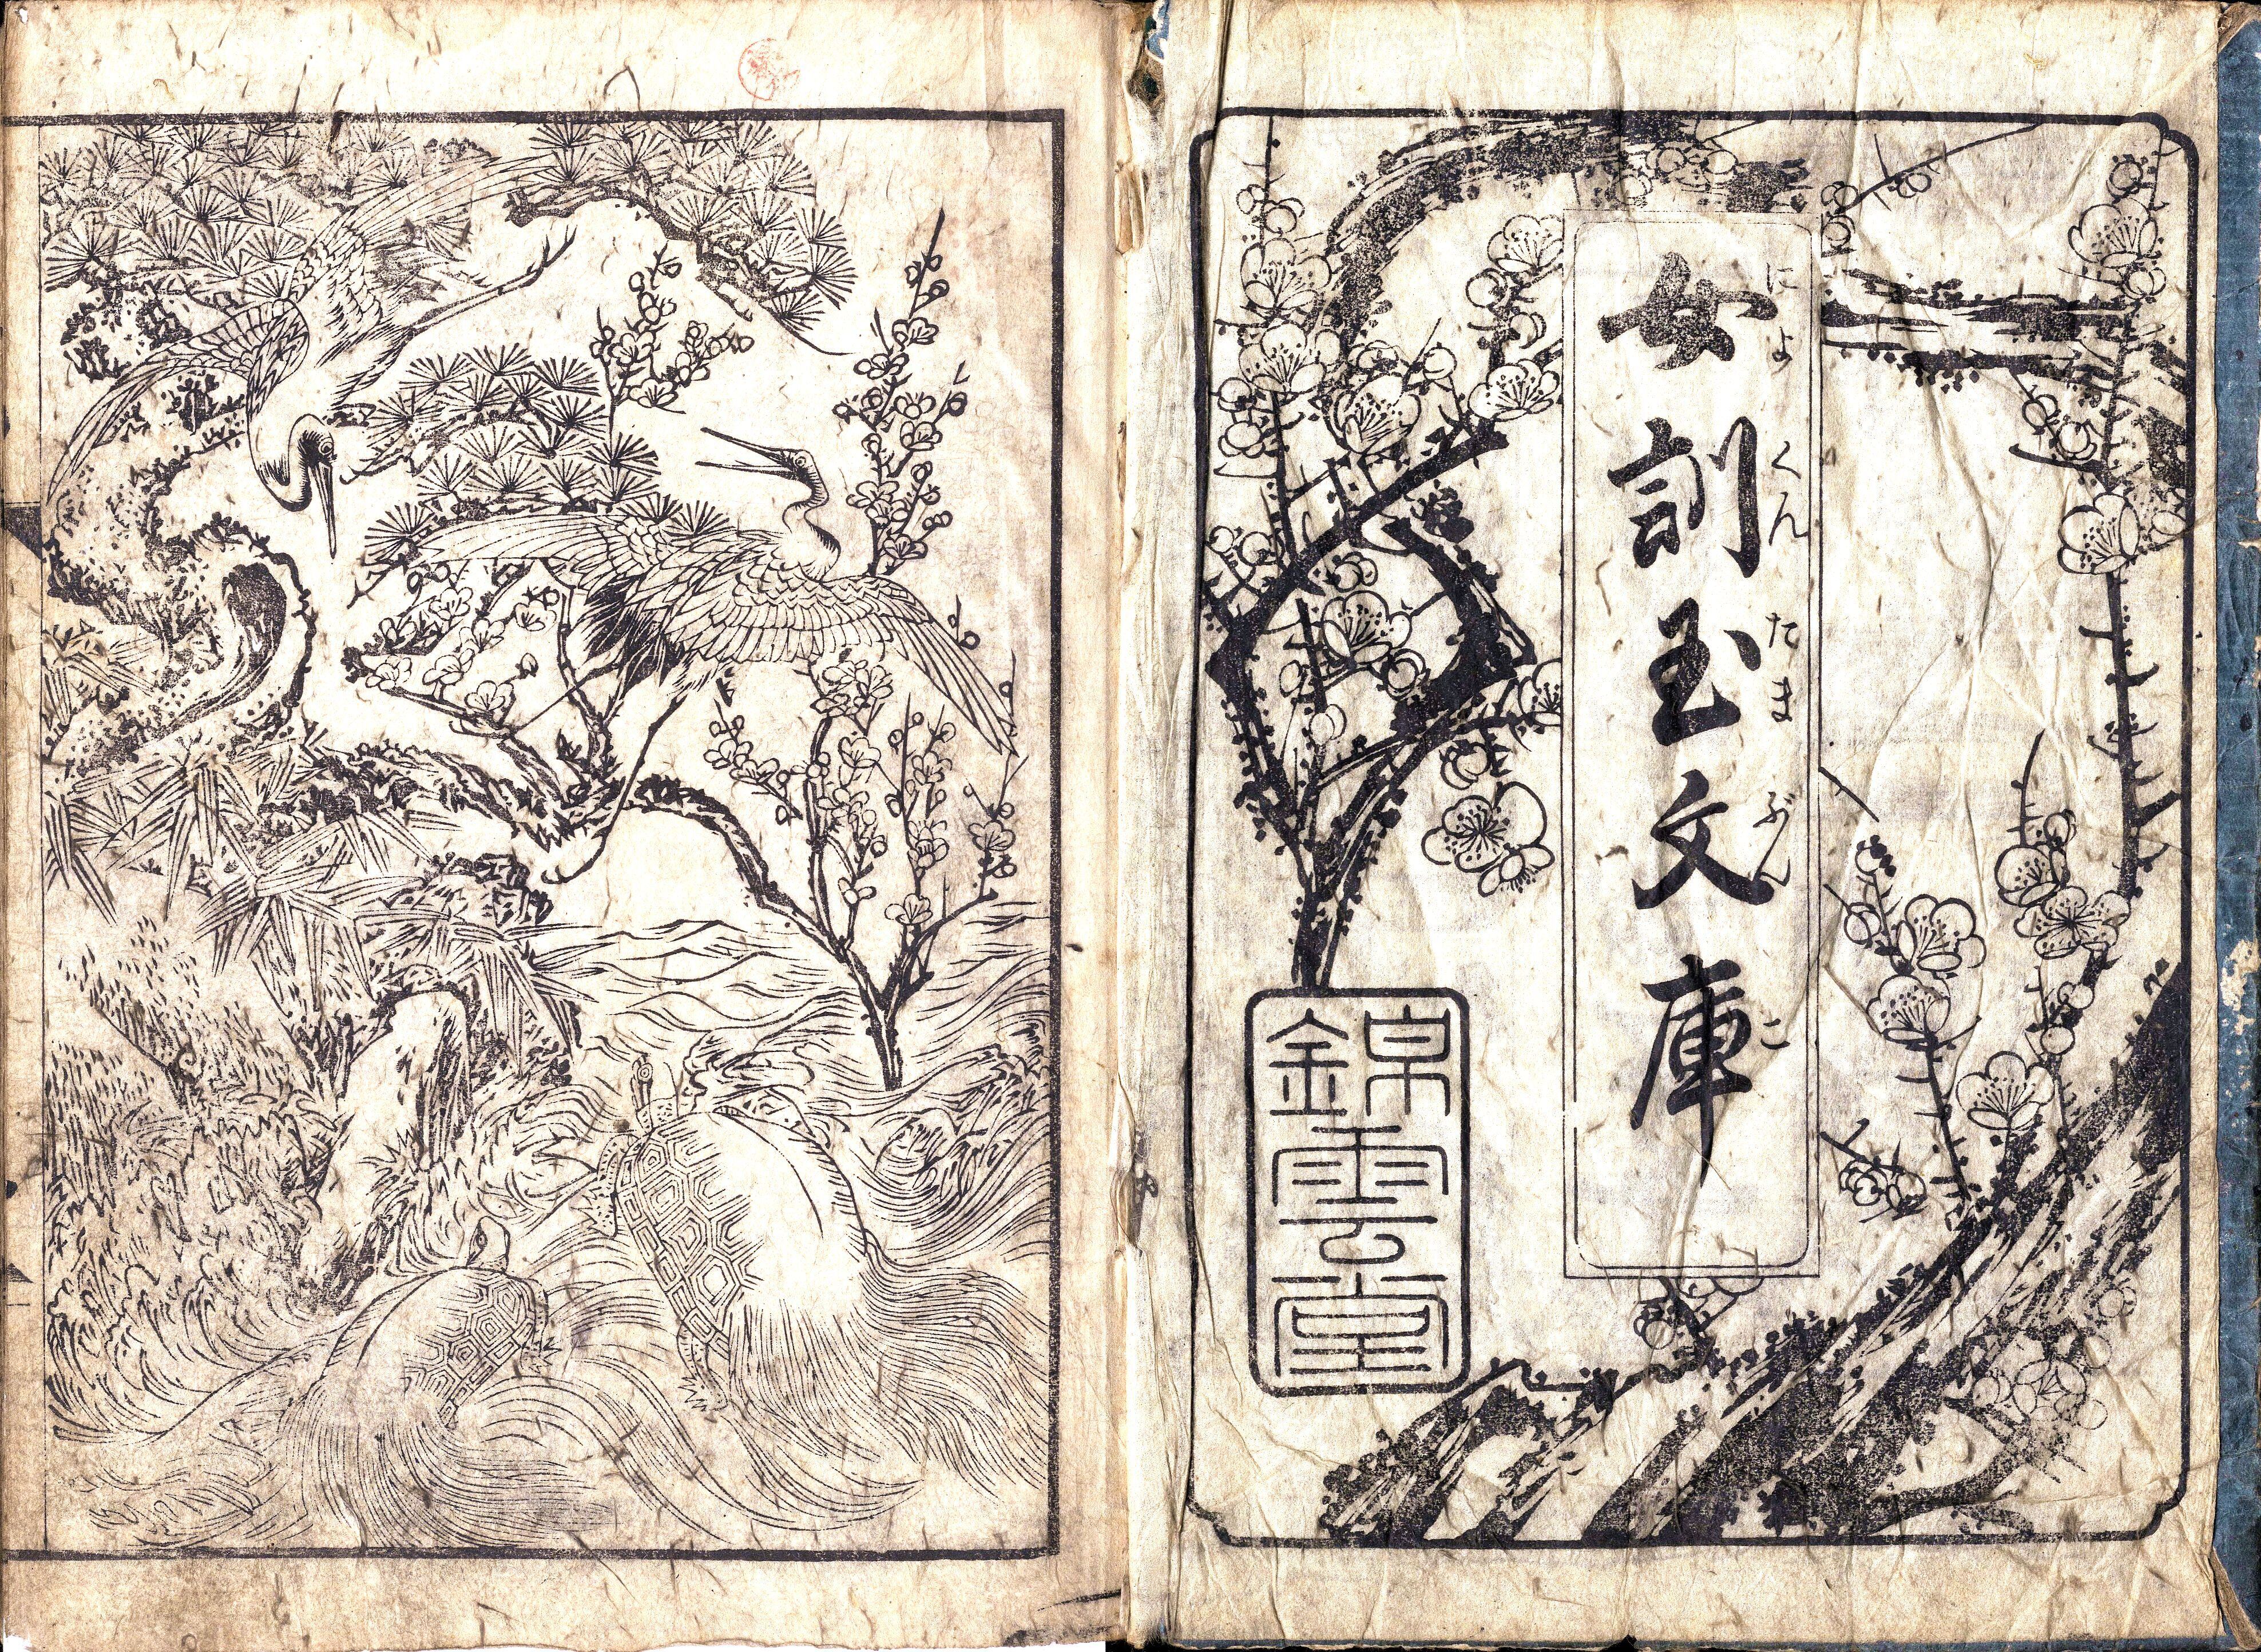 女訓玉文庫
にょくんたまぶんこ
錦雲堂